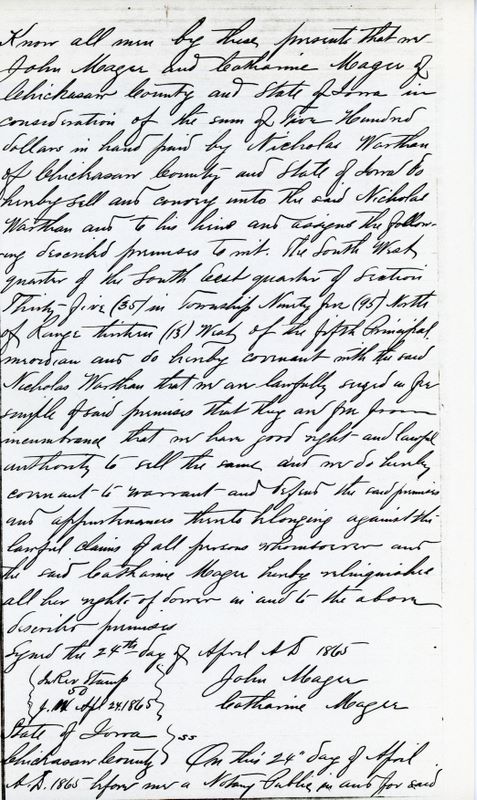 Know all men by these presents that we
John Mager and Catharine Mager of
Chickasaw County and State of Iowa in
consideration of the sum of Five Hundred
dollars in hand paid by Nicholas Warthan
of Chickasaw County and State of Iowa do
hereby sell and convey unto the said Nicholas
Warthan and to his heirs and assigns the follow-
ing described premises to wit. The South West
quarter of the South East quarter of Section
Thirty-five (35) in Township Ninty five (95) North
of Range thirteen (13) West of the fifth Principal
meridian and do hereby covenant with the said
Nicholas Warthan that we are lawfully seized in fee
simple of said premises that they are free from
incumbrance that we have good right and lawful
authority to sell the same and we do hereby
covenant to warrant and defend the said premises
and appurtenances thereto belonging against the
lawful claims of all persons whomsoever and
the said Catharine Mager hereby relinquishes
all her rights of dower in and to the above
described premises
Signed the 24th day of April A D 1865
In Rev Stamp John Mager
50
J. M. Apl 24. 1865 Catharine Mager
State of Iowa } ss
Chickasaw County On this 24" day of April
A.D. 1865 before me a Notary Public in and for said